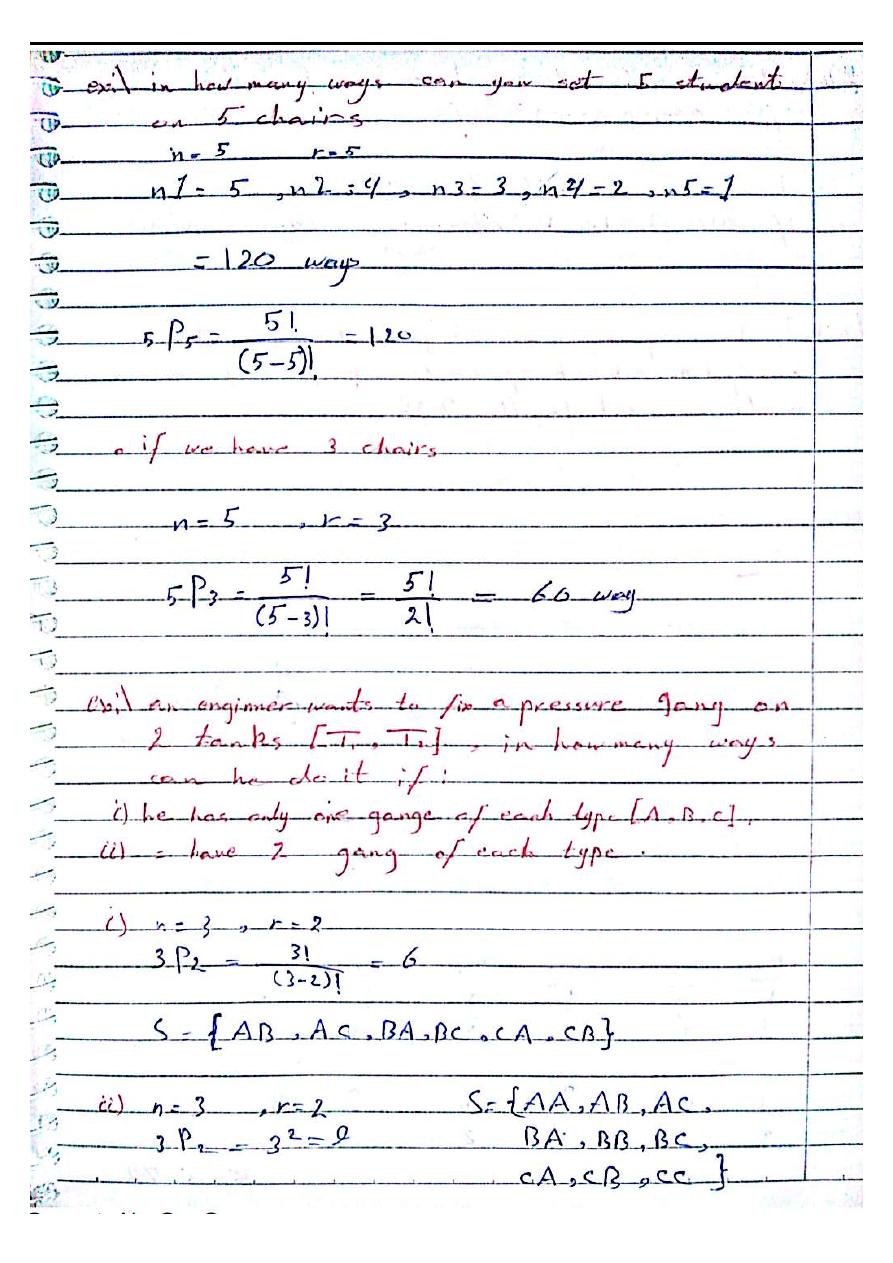 ex:\ in how many ways can you set 5 student
on 5 chairs
n = 5 r = 5
n1 = 5 , n2 = 4 , n3 = 3 , n4 = 2 , n5 = 1
= 120 ways
5P5 = 5! / (5-5)! = 120
o if we have 3 chairs
n = 5 , r = 3
5P3 = 5! / (5-3)! = 5! / 2! = 60 way
ex:\ an enginner wants to fix a pressure gang on
2 tanks [T1, T2] , in how many ways
can he do it if :
i) he has only one gange of each type [A, B, C],
ii) = have 2 gang of each type.
i) n = 3 , r = 2
3P2 = 3! / (3-2)! = 6
S = { AB , AC , BA , BC , CA , CB }
ii) n = 3 , r = 2 S = { AA , AB , AC ,
3P2 = 3² = 9 BA , BB , BC ,
CA , CB , CC }